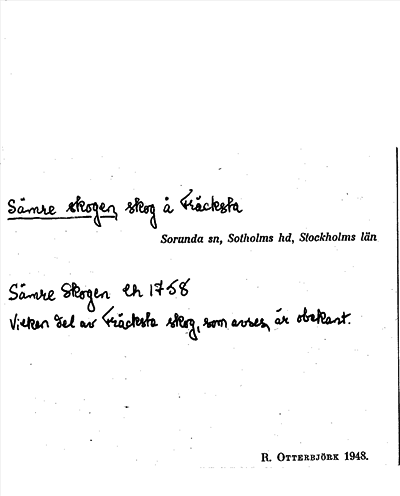 Sämre skogen, skog å Fräcksta
Sorunda sn, Sotholms hd, Stockholms län
Sämre Skogen Lh 1758
Vilken del av Fräcksta skog, som avses, är obekant.
R. OTTERBJÖRK 1948.